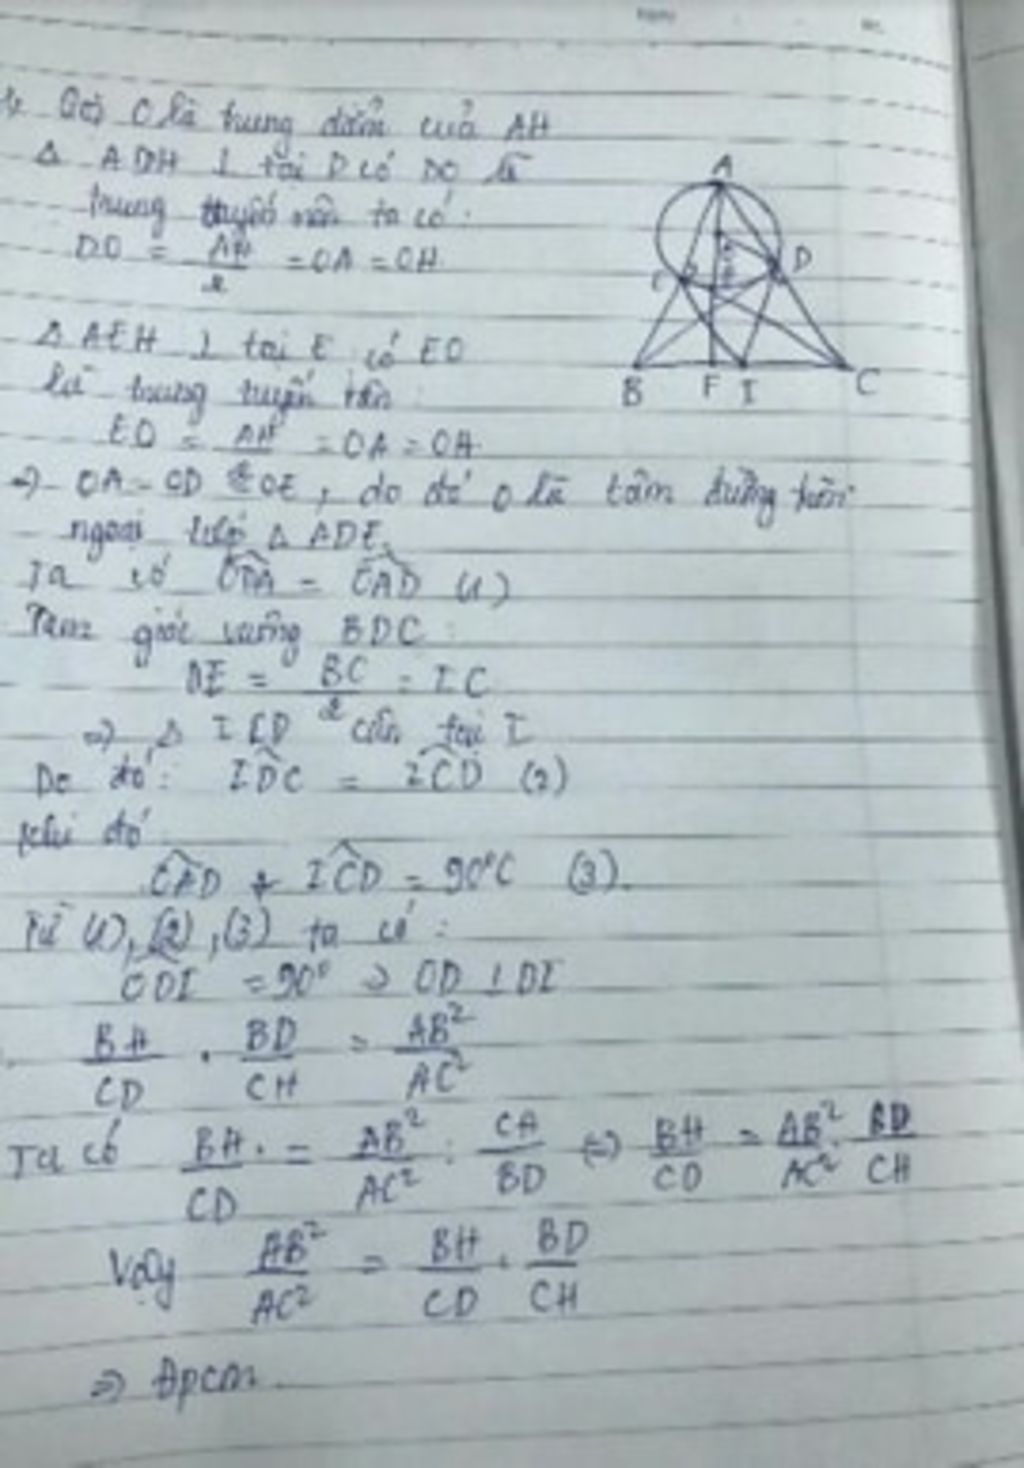 Gọi O là trung điểm của AH
Δ ADH ⊥ tại D có DO là
trung tuyến nên ta có:
DO = AH/2 = OA = OH
Δ AEH ⊥ tại E có EO
là trung tuyến nên:
EO = AH = OA = OH
⇒ OA = OD = OE, do đó O là tâm đường tròn
ngoại tiếp Δ ADE.
Ta có ODA = OAD (1)
Tam giác vuông BDC:
DI = BC/2 = IC
⇒ Δ ICD cân tại I
Do đó: IDC = ICD (2)
Khi đó
OAD + ICD = 90°C (3).
Từ (1), (2), (3) ta có:
ODI = 90° ⇒ OD ⊥ DI
BH/CD . BD/CH = AB²/AC²
Ta có BH/CD . = AB²/AC² : CH/BD ⇔ BH/CD = AB²/AC² . BD/CH
Vậy AB²/AC² = BH/CD . BD/CH
⇒ Đpcm.
A
D
B F I C